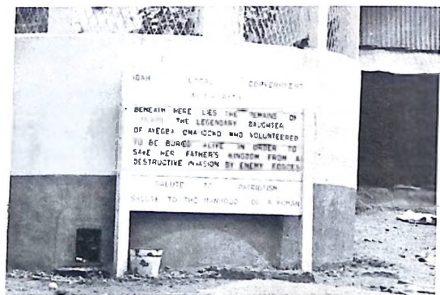 IDAH LOCAL GOVERNMENT
BENEATH HERE LIES THE REMAINS OF
THE LEGENDARY DAUGHTER
OF AYEGBA OMAIDOKO WHO VOLUNTEERED
TO BE BURIED ALIVE IN ORDER TO
SAVE HER FATHER'S KINGDOM FROM A
DESTRUCTIVE INVASION BY ENEMY FORCES
SALUTE TO PATRIOTISM
SALUTE TO THE OF A WOMAN